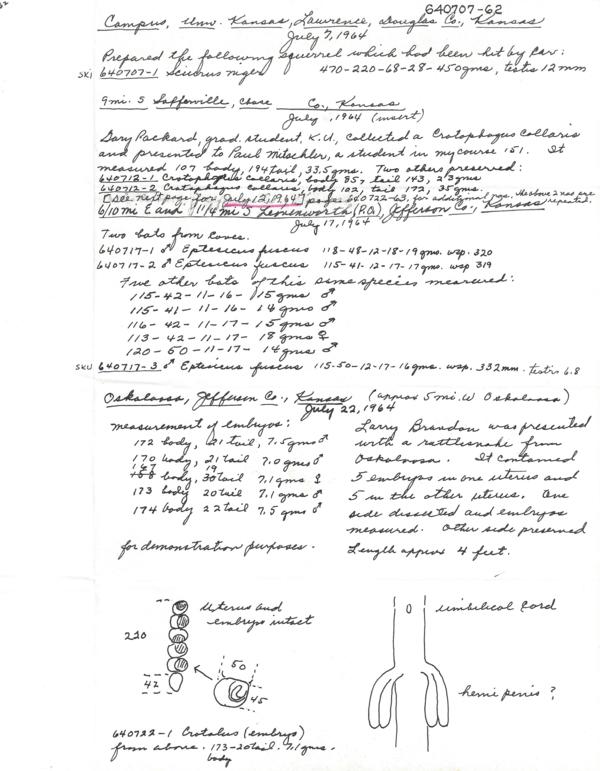 640707-62
Campus, Univ. Kansas, Lawrence, Douglas Co., Kansas
July 7, 1964
Prepared the following squirrel which had been hit by car:
SKI 640707-1 Sciurus niger 470-220-68-28-450gms, testis 12mm
9mi. S Saffenville, Chase Co., Kansas
July , 1964 (insert)
Gary Packard, grad. student, K.U., collected a Crotaphagus collaris
and presented to Paul Mitschler, a student in my course 151. It
measured 107 body, 194 tail, 33.5gms. Two others preserved:
640712-1 Crotaphagus collaris, body 85, tail 143, 23gms
640712-2 Crotaphagus collaris, body 102, tail 172, 35gms.
[See next page for July 12, 1964] page 640722-63, for additional nos. The above 2 nos are repeated.
6/10 mi E and 1 1/4 mi S Leavenworth (P.O.), Jefferson Co., Kansas
July 17, 1964
Two bats from caves.
640717-1 ♂ Eptesicus fuscus 118-48-12-18-19gms. wsp. 320
640717-2 ♂ Eptesicus fuscus 115-41-12-17-17gms. wsp 319
Five other bats of this same species measured:
115-42-11-16-15gms ♂
115-41-11-16-14gms ♂
116-42-11-17-15gms ♂
113-42-11-17-18gms ♀
120-50-11-17-14gms ♂
SKU 640717-3 ♂ Eptesicus fuscus 115-50-12-17-16gms. wsp. 332mm. testis 6.8
Oskaloosa, Jefferson Co., Kansas (approx 5mi. W Oskaloosa)
July 22, 1964
measurement of embryos:
172 body, 21 tail, 7.5gms ♂
170 body, 21 tail 7.0gms ♂
167 19
168 body, 30 tail 7.1gms ♀
173 body 20 tail 7.1gms ♂
174 body 22 tail 7.5gms ♂
for demonstration purposes.
Larry Brandon was presented
with a rattlesnake from
Oskaloosa. It contained
5 embryos in one uterus and
5 in the other uterus. One
side dissected and embryos
measured. Other side preserved
Length approx 4 feet.
Uterus and
embryos intact
220
42
50
45
640722-1 Crotalus (embryo)
from above. 173-20 tail. 7.1gms.
body
umbilical cord
hemipenis?